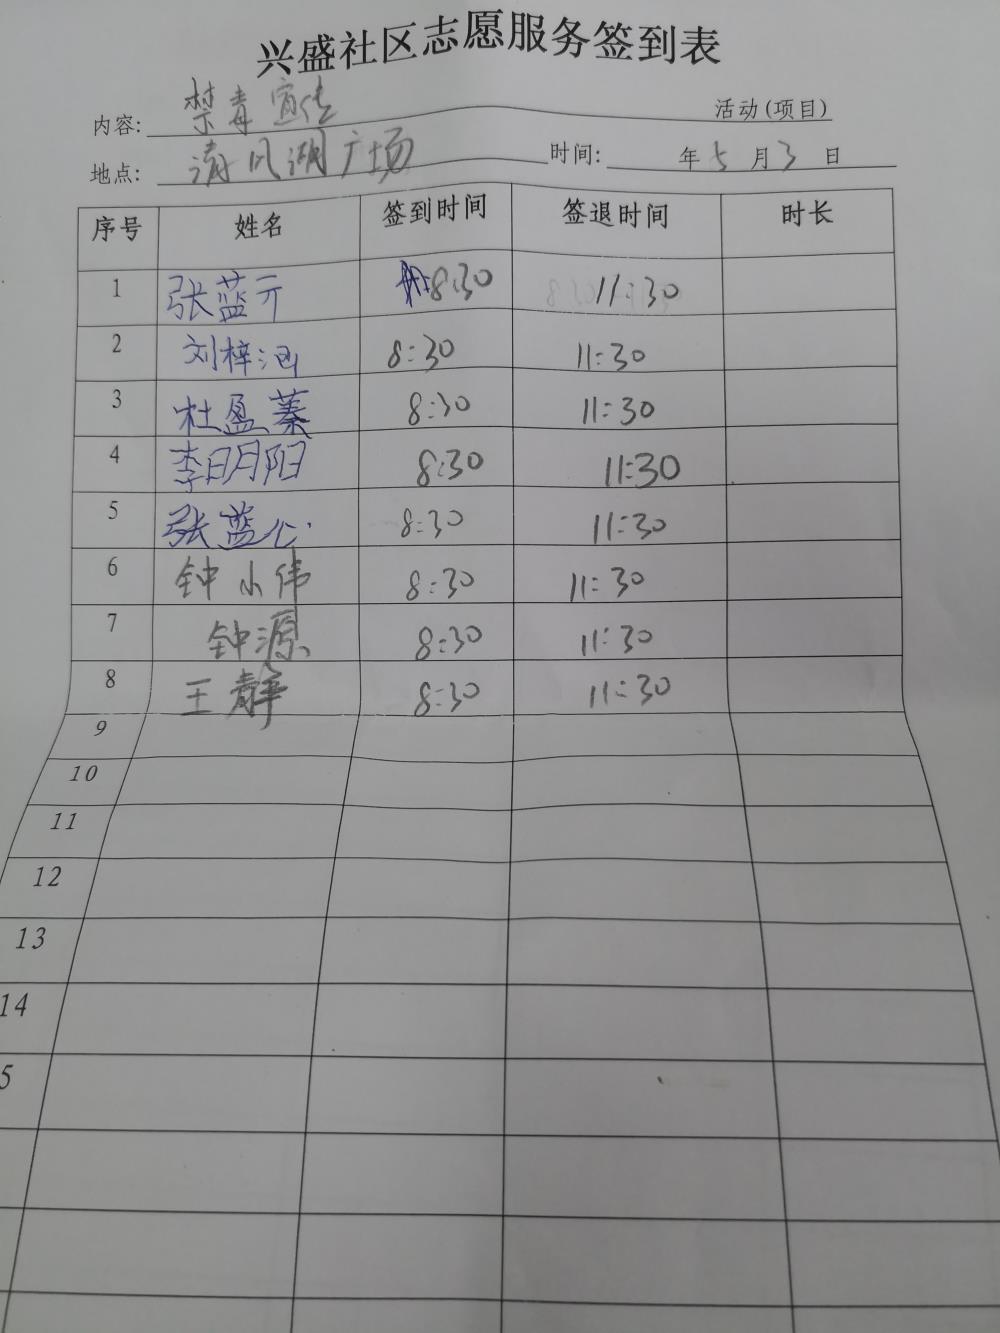 兴盛社区志愿服务签到表
内容: 禁毒宣传 活动(项目)
地点: 清风湖广场 时间: 年5月3日
序号 姓名 签到时间 签退时间 时长
1 张蓝亓 8:30 11:30
2 刘梓涵 8:30 11:30
3 杜盈蓁 8:30 11:30
4 李明阳 8:30 11:30
5 张蓝心 8:30 11:30
6 钟小伟 8:30 11:30
7 钟源 8:30 11:30
8 王静 8:30 11:30
9
10
11
12
13
14
5